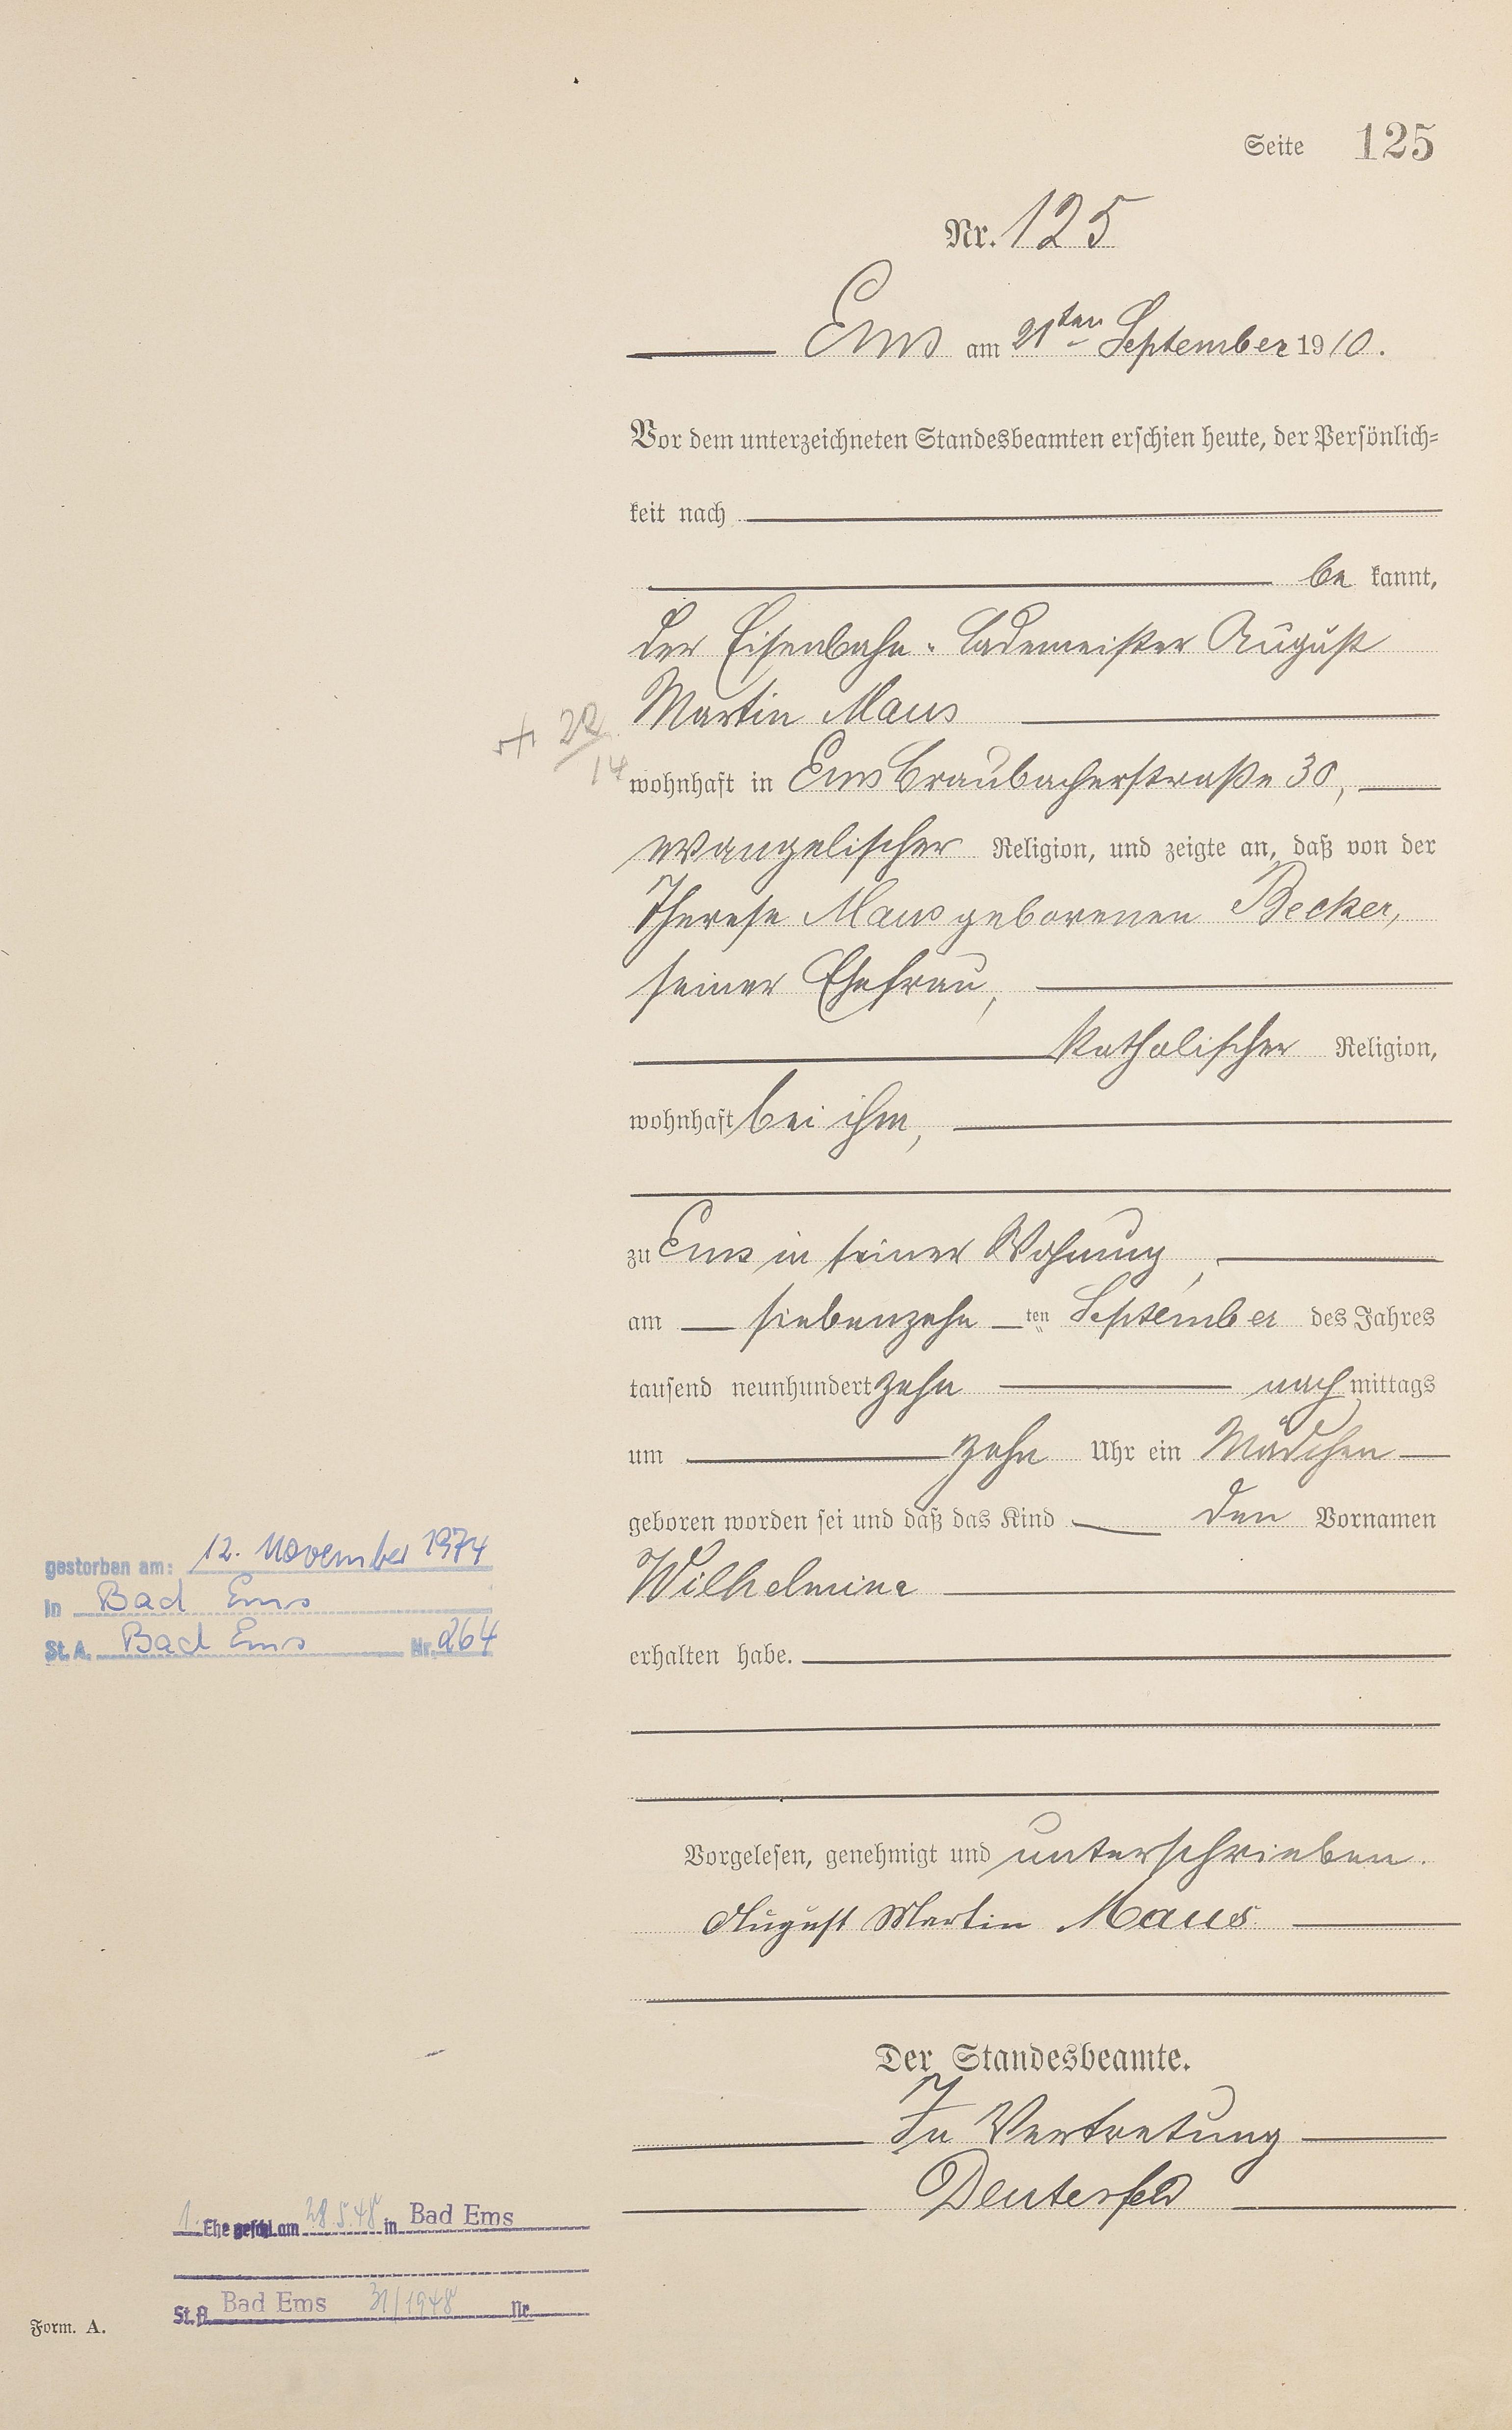 Seite 125
Nr. 125
Ems am 21ten September 1910.
Vor dem unterzeichneten Standesbeamten erschien heute, der Persönlich-
keit nach
be kannt,
der Eisenbahn-Lademeister August
Martin Maus
wohnhaft in Ems Braubacherstraße 30,
evangelischer Religion, und zeigte an, daß von der
Therese Maus geborenen Becker,
seiner Ehefrau,
katholischer Religion,
wohnhaft bei ihm,
zu Ems in seiner Wohnung,
am siebenzehn ten September des Jahres
tausend neunhundert zehn nach mittags
um zehn Uhr ein Mädchen
geboren worden sei und daß das Kind den Vornamen
Wilhelmine
erhalten habe.
Vorgelesen, genehmigt und unterschrieben.
August Martin Maus
Der Standesbeamte.
In Vertretung
Deuterfeld
22/14
gestorben am: 12. November 1974
in Bad Ems
St. A. Bad Ems Nr. 264
1. Ehe geschl. am 28.5.48 in Bad Ems
St. A. Bad Ems 31/1948 Nr.
Form. A.